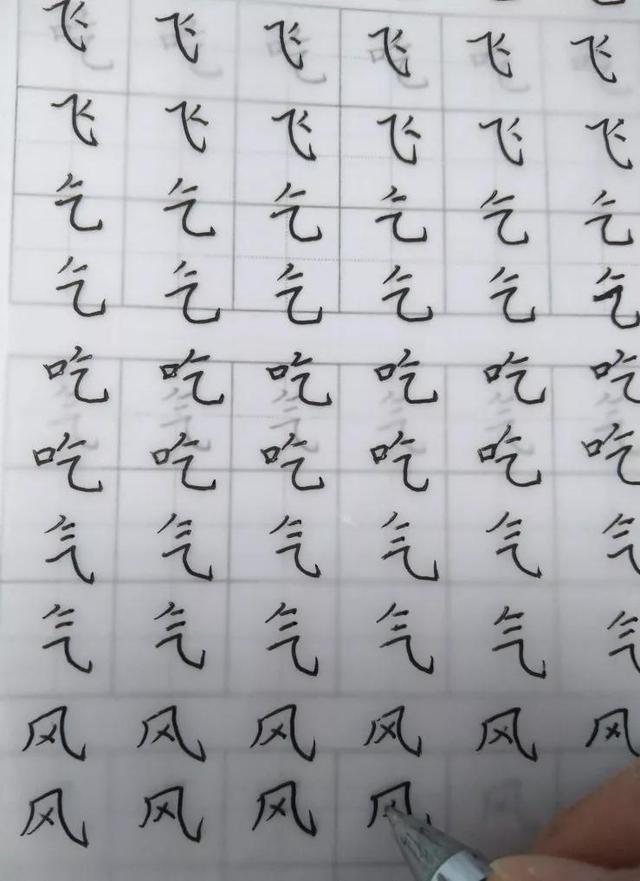 飞 飞 飞 飞 飞 飞
飞 飞 飞 飞 飞 飞
乞 乞 乞 乞 乞 乞
乞 乞 乞 乞 乞 乞
吃 吃 吃 吃 吃 吃
吃 吃 吃 吃 吃 吃
气 气 气 气 气 气
气 气 气 气 气 气
风 风 风 风 风 风
风 风 风 风